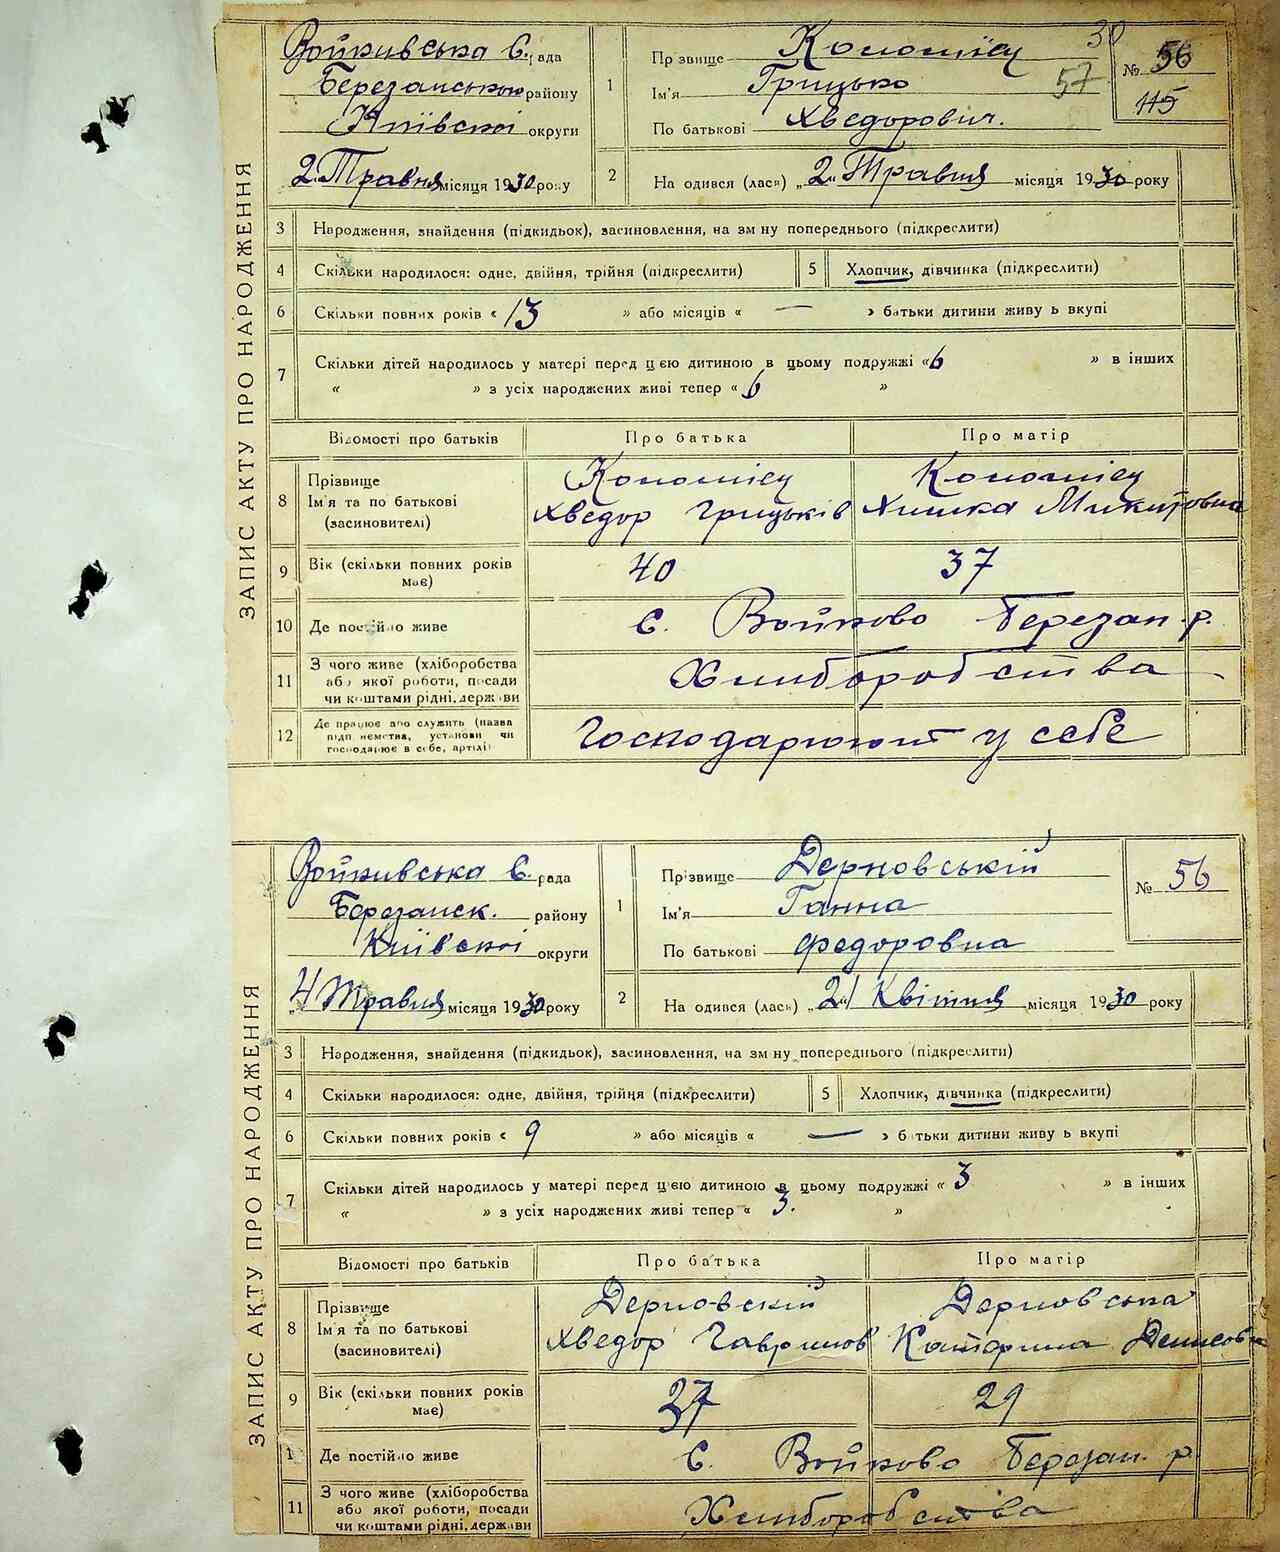 ЗАПИС АКТУ ПРО НАРОДЖЕННЯ
Войкивська С. рада
Березанською району
Київської округи
2 Травня місяця 1930 року
1 Прізвище Коломієц
Ім'я Грицько
По батькові Хведорович.
30
57
№ 56
115
2 На одився (лась) „2" Травня місяця 1930 року
3 Народження, знайдення (підкидьок), засиновлення, на зм ну попереднього (підкреслити)
4 Скільки народилося: одне, двійня, трійня (підкреслити) 5 Хлопчик, дівчинка (підкреслити)
6 Скільки повних років « 13 » або місяців « — » батьки дитини живу ь вкупі
7 Скільки дітей народилось у матері перед цією дитиною в цьому подружжі «6 » в інших
« » з усіх народжених живі тепер « 6 »
Відомості про батьків Про батька Про матір
8 Прізвище Коломієц Коломієц
Ім'я та по батькові Хведор Грицьків Химка Микитовна
(засиновителі)
9 Вік (скільки повних років має) 40 37
10 Де постійно живе С. Войково Березан. р.
11 З чого живе (хліборобства або якої роботи, посади чи коштами рідні, держави Хлиборобства
12 Де працює або служить (назва підп иємства, установи чи господарює в себе, артілі) Господарюют у себе
ЗАПИС АКТУ ПРО НАРОДЖЕННЯ
Войкивська С. рада
Березанск. району
Київської округи
4 Травня місяця 1930 року
1 Прізвище Дерновській
Ім'я Ганна
По батькові Федоровна
№ 56
2 На одився (лась) „21 Квітня місяця 1930 року
3 Народження, знайдення (підкидьок), засиновлення, на зм ну попереднього (підкреслити)
4 Скільки народилося: одне, двійня, трійня (підкреслити) 5 Хлопчик, дівчинка (підкреслити)
6 Скільки повних років « 9 » або місяців « — » батьки дитини живу ь вкупі
7 Скільки дітей народилось у матері перед цією дитиною в цьому подружжі « 3 » в інших
« » з усіх народжених живі тепер « 3. »
Відомості про батьків Про батька Про матір
8 Прізвище Дерновскій Дерновська
Ім'я та по батькові Хведор Гаврилов Катерина Денисовна
(засиновителі)
9 Вік (скільки повних років має) 37 29
1 Де постійно живе С. Войково Березан. р.
11 З чого живе (хліборобства або якої роботи, посади чи коштами рідні, держави Хлиборобства